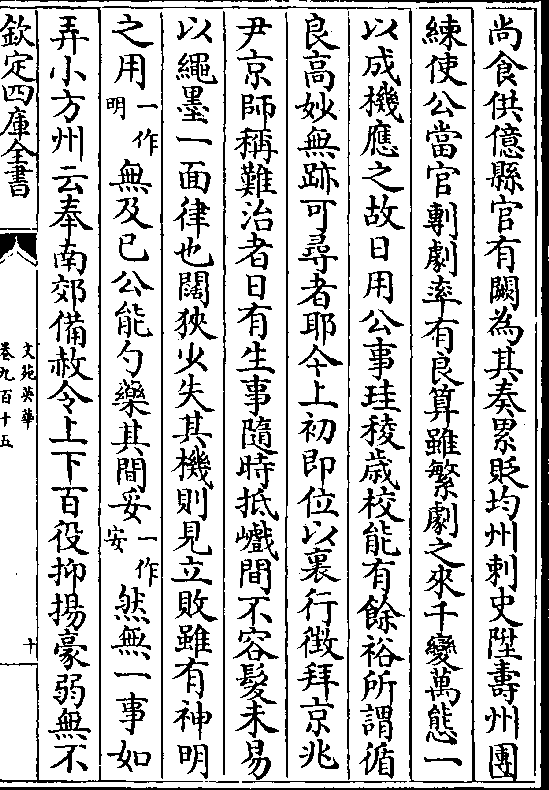 尚食供億縣官有闕為其奏累貶均州刺史陞壽州團
練使公當官剸劇率有良算雖繁劇之來千變萬態一
以成機應之故日用公事珪稜歲校能有餘裕所謂循
良高妙無跡可尋者耶今上初即位以裏行徴拜京兆
尹京師稱難治者日有生事隨時抵巇間不容髮未易
以繩墨一面律也闊狹少失其機則見立敗雖有神明
之用一作明無及已公能勺藥其間妥一作安然無一事如
弄小方州云奉南郊備赦令上下百役抑揚豪弱無不
欽定四庫全書
文苑英華
卷九百十五
十